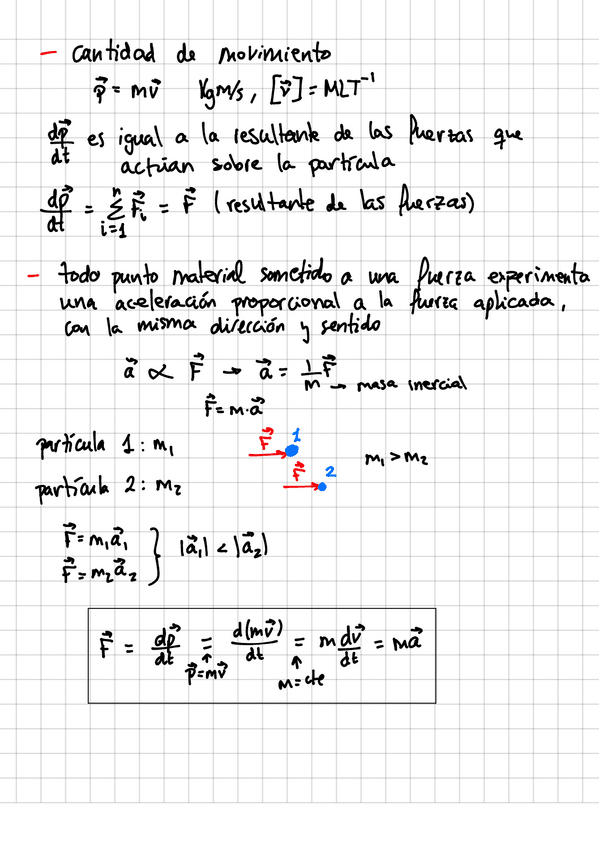 - Cantidad de movimiento
p⃗ = mv⃗ Kgm/s, [v⃗] = MLT⁻¹
dp⃗/dt es igual a la resultante de las fuerzas que
actúan sobre la partícula
dp⃗/dt = Σ_{i=1}^{n} F⃗ᵢ = F⃗ (resultante de las fuerzas)
- todo punto material sometido a una fuerza experimenta
una aceleración proporcional a la fuerza aplicada,
con la misma dirección y sentido
a⃗ ∝ F⃗ → a⃗ = 1/m F⃗ → masa inercial
F⃗ = m·a⃗
partícula 1: m₁ F⃗ 1
m₁ > m₂
partícula 2: m₂ F⃗ 2
F⃗ = m₁a⃗₁
F⃗ = m₂a⃗₂ } |a⃗₁| < |a⃗₂|
F⃗ = dp⃗/dt = d(mv⃗)/dt = m dv⃗/dt = ma⃗
↑ ↑
p⃗=mv⃗ m=cte